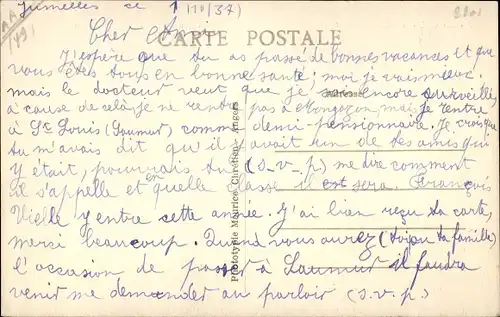 Jumelles ce 1 (10/37)
Cher
CARTE POSTALE
J'espère que tu as passé de bonnes vacances et que
vous êtes tous en bonne santé; moi je vais mieux
mais le docteur veut que je sois encore surveillé
Adresse
à cause de celà je ne rentre pas à Mongazon, mais je rentre
à St Louis (Saumur) comme demi-pensionnaire. Je crois que
tu m'avais dit qu'il y avait un de tes amis qui
y était, pourrais tu (s.v.p) me dire comment
il s'appelle et en quelle classe il est sera. François
Vielle y entre cette année. J'ai bien reçu ta carte,
merci beaucoup. Quand vous aurez (toi ou ta famille)
l'occasion de passer à Saumur il faudra
venir me demander au parloir (s.v.p.)
Prototypie Maurice Chrétien - Angers